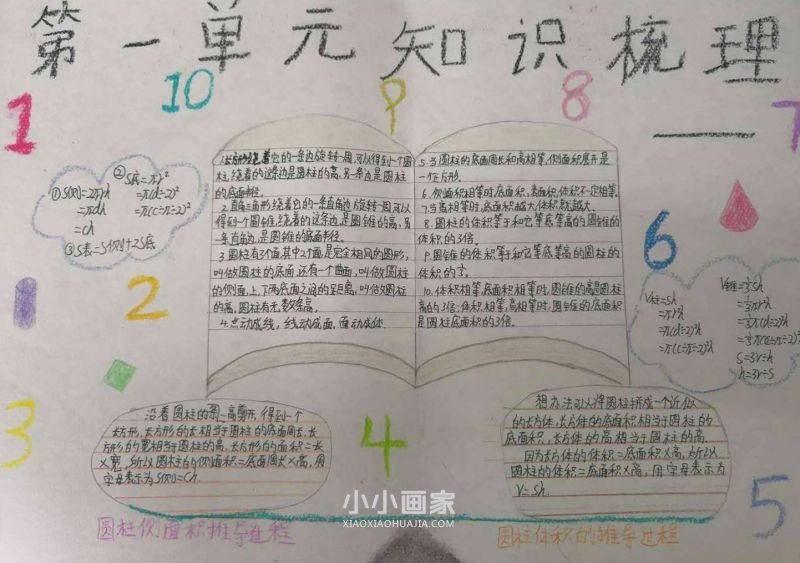 第一单元知识梳理
1
10
9
8
7
①S侧=2πrh
=πdh
=Ch
②S底=πr²
=π(d÷2)²
=π(C÷π÷2)²
③S表=S侧+2S底
1.长方形绕着它的一条边旋转一周,可以得到一个圆
柱,绕着的这条边是圆柱的高,另一条边是圆柱
的底面半径。
2.直角三角形绕着它的一条直角边旋转一周可以
得到一个圆锥,绕着的这条边是圆锥的高,另
一条直角边是圆锥的底面半径。
3.圆柱有3个面,其中2个面是完全相同的圆形,
叫做圆柱的底面,还有一个曲面,叫做圆柱
的侧面,上、下两底面之间的距离,叫做圆柱
的高,圆柱有无数条高。
4.点动成线,线动成面,面动成体
5.当圆柱的底面周长和高相等,侧面积展开是
一个正方形。
6.侧面积相等时,底面积、表面积、体积不一定相等。
7.当高相等时,底面积越大,体积就越大。
8.圆柱的体积等于和它等底等高的圆锥的
体积的3倍。
9.圆锥的体积等于和它等底等高的圆柱的
体积的⅓。
10.体积相等,底面积相等时,圆锥的高是圆柱
高的3倍;体积相等,高相等时,圆锥的底面积
是圆柱底面积的3倍。
6
V柱=Sh
=πr²h
=π(d÷2)²h
=π(C÷π÷2)²h
V锥=⅓Sh
=⅓πr²h
=⅓π(d÷2)²h
=⅓π(C÷π÷2)²h
S=3V÷h
h=3V÷S
2
3
沿着圆柱的高剪开,得到一个
长方形,长方形的长相当于圆柱的底面周长,长
方形的宽相当于圆柱的高,长方形的面积=长
×宽,所以圆柱的侧面积=底面周长×高,用
字母表示为S侧=Ch。
圆柱侧面积推导过程
4
想办法可以将圆柱拼成一个近似
的长方体,长方体的底面积相当于圆柱的
底面积,长方体的高相当于圆柱的高。
因为长方体的体积=底面积×高,所以
圆柱的体积=底面积×高,用字母表示为
V=Sh。
圆柱体积的推导过程
5
小小画家
XIAOXIAOHUAJIA.COM